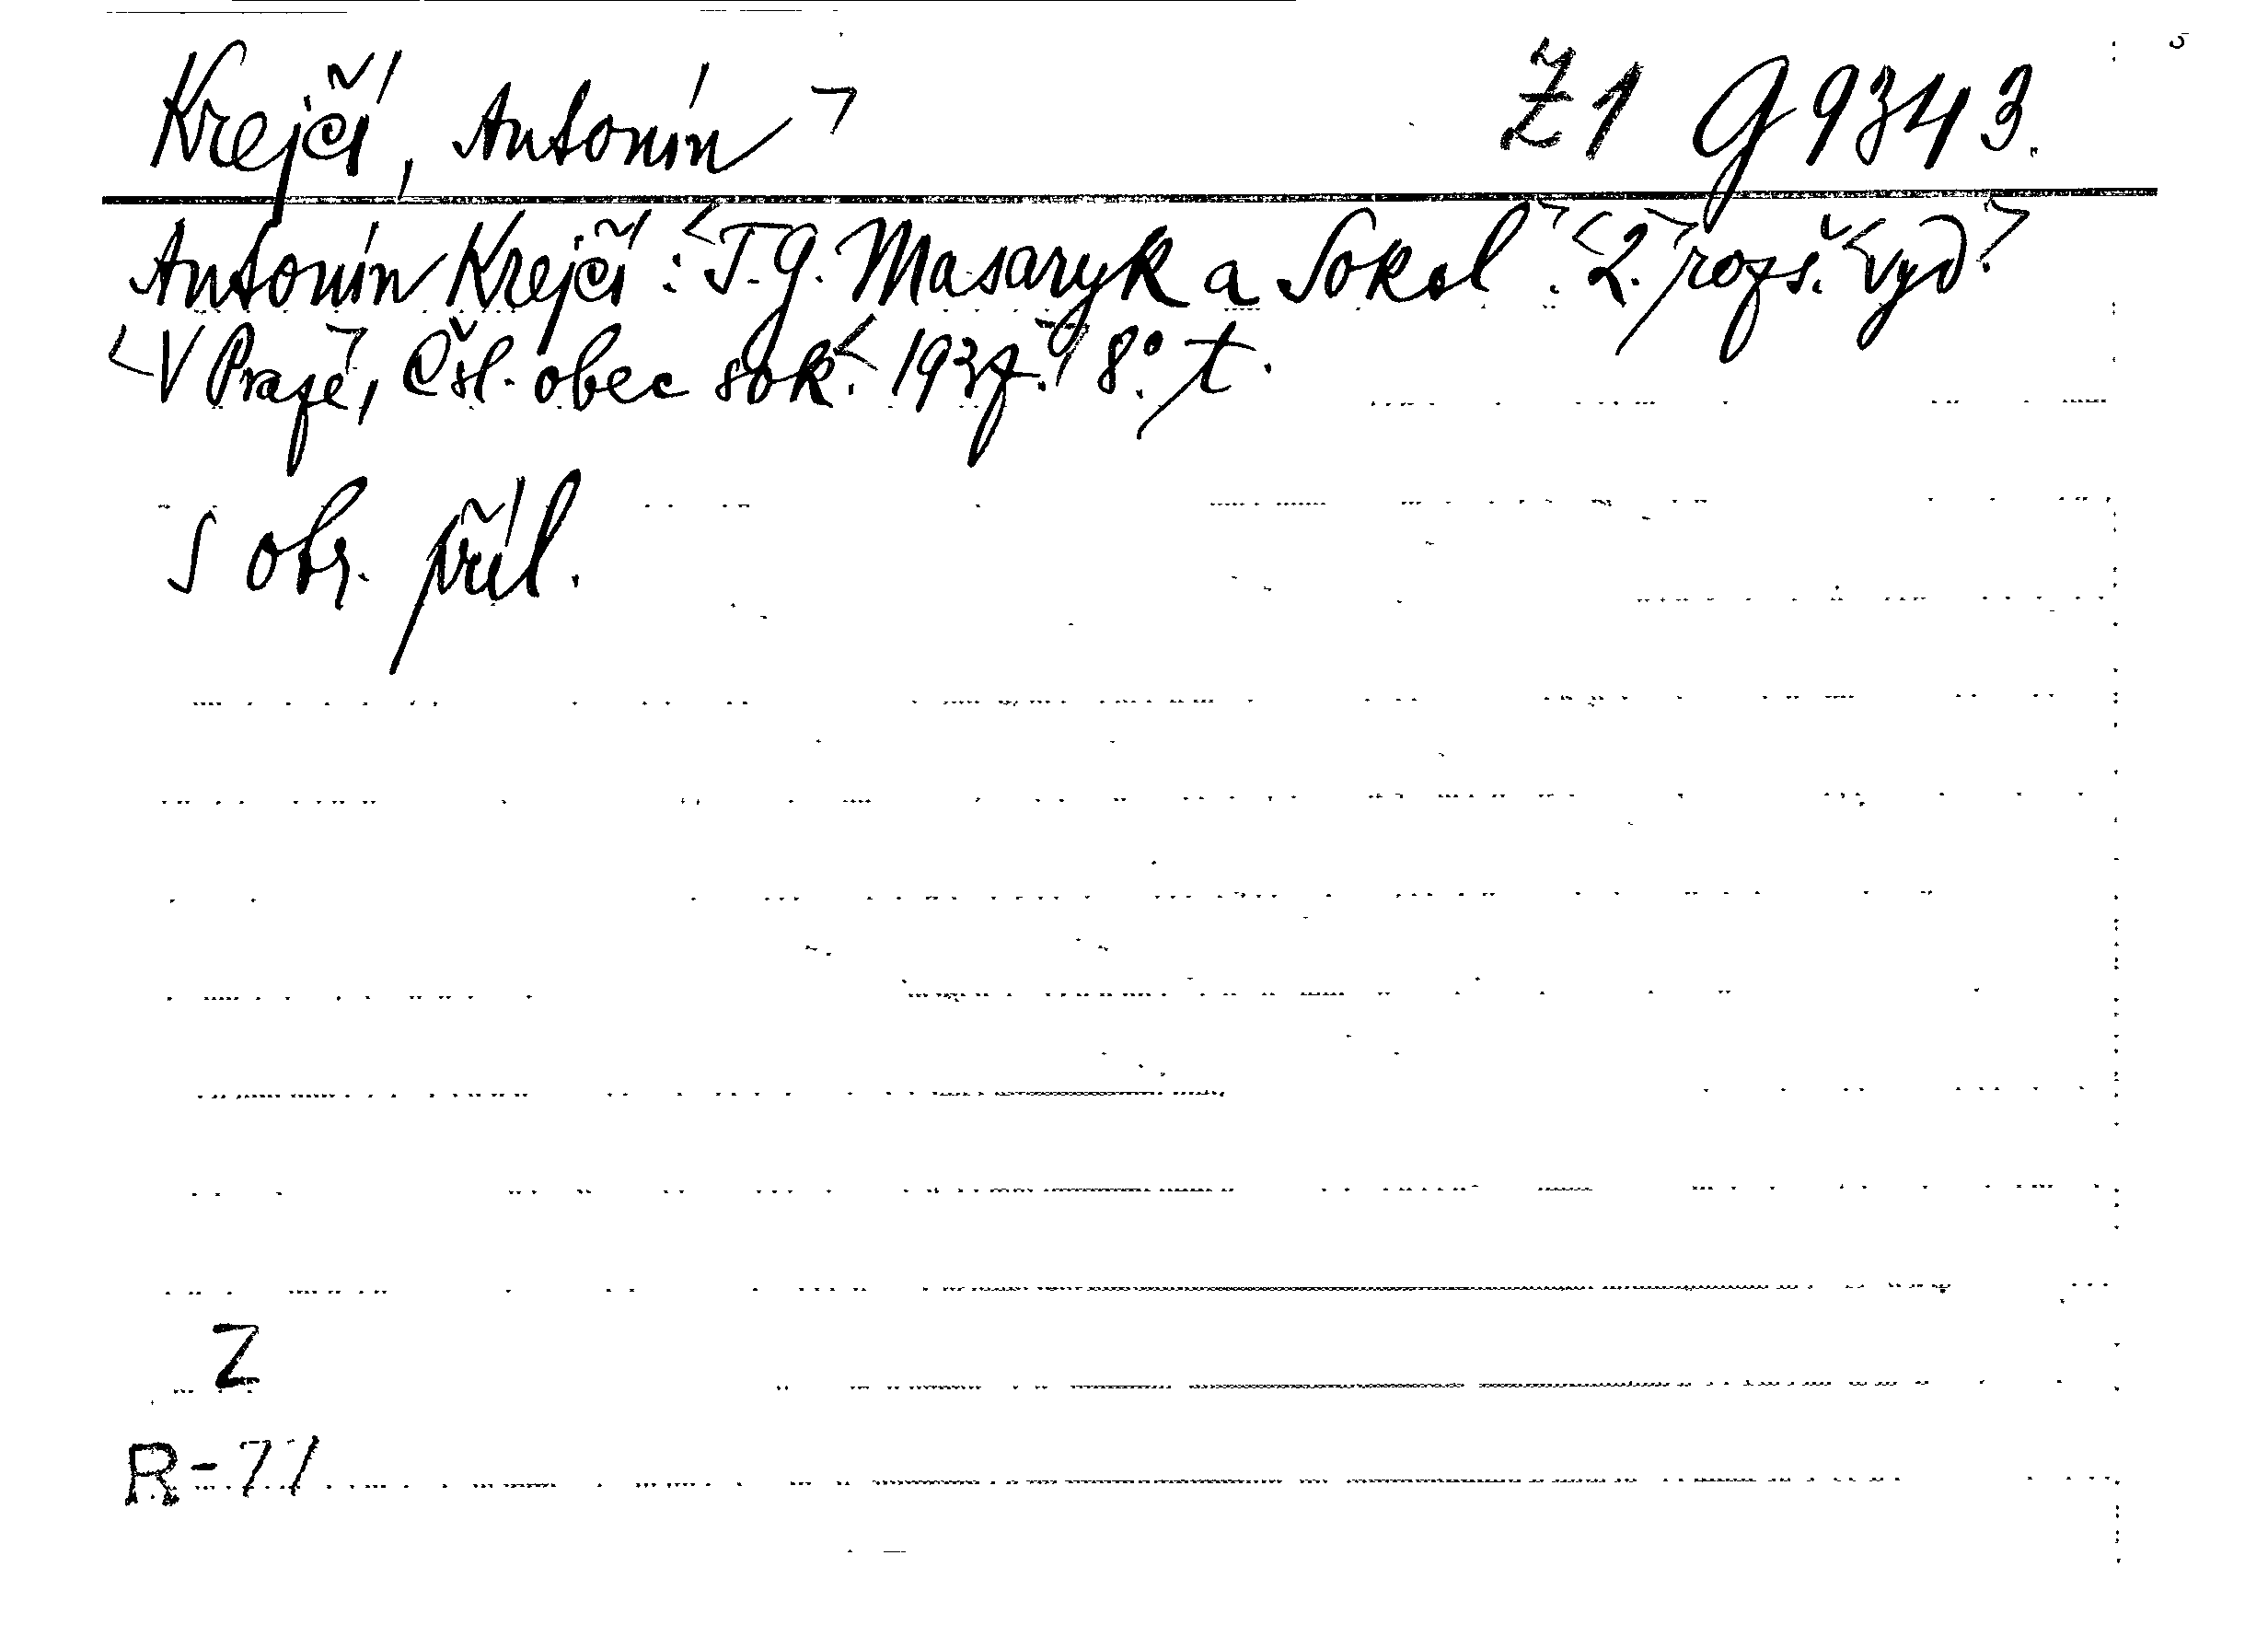 Krejčí, Antonín ꓶ Z1 G 9343.
Antonín Krejčí: <T. G. Masaryk a Sokol.ꓶ <2.ꓶ rozš. <vyd.ꓶ
<V Prazeꓶ, Čsl. obec sok. <1937.ꓶ 8°. t.
S obr. příl.
Z
R-77